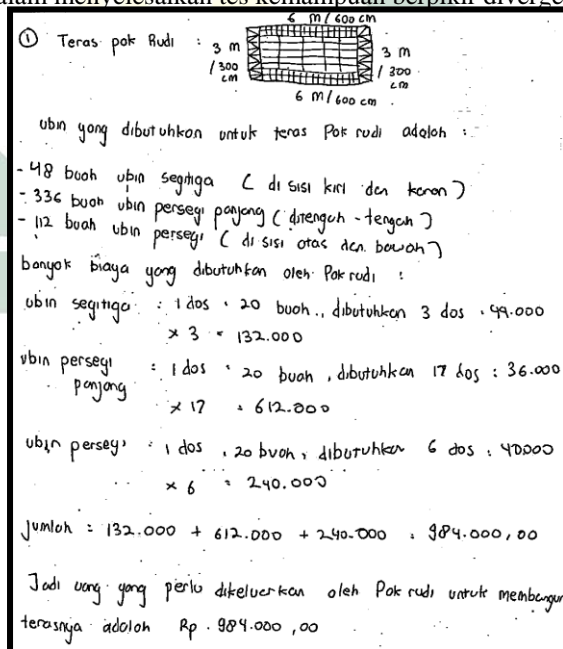 dalam menyelesaikan tes kemampuan berpikir diverge
① Teras pak Rudi :
6 m / 600 cm
3 m / 300 cm
3 m / 300 cm
6 m / 600 cm
ubin yang dibutuhkan untuk teras Pak rudi adalah :
- 48 buah ubin segitiga ( di sisi kiri dan kanan )
- 336 buah ubin persegi panjang ( ditengah - tengah )
- 112 buah ubin persegi ( di sisi atas dan bawah )
banyak biaya yang dibutuhkan oleh Pak rudi :
ubin segitiga : 1 dos = 20 buah, dibutuhkan 3 dos : 44.000
× 3 = 132.000
ubin persegi panjang : 1 dos = 20 buah, dibutuhkan 17 dos : 36.000
× 17 = 612.000
ubin persegi : 1 dos = 20 buah, dibutuhkan 6 dos : 40.000
× 6 = 240.000
jumlah = 132.000 + 612.000 + 240.000 = 984.000,00
Jadi uang yang perlu dikeluarkan oleh Pak rudi untuk membangun
terasnya adalah Rp. 984.000,00